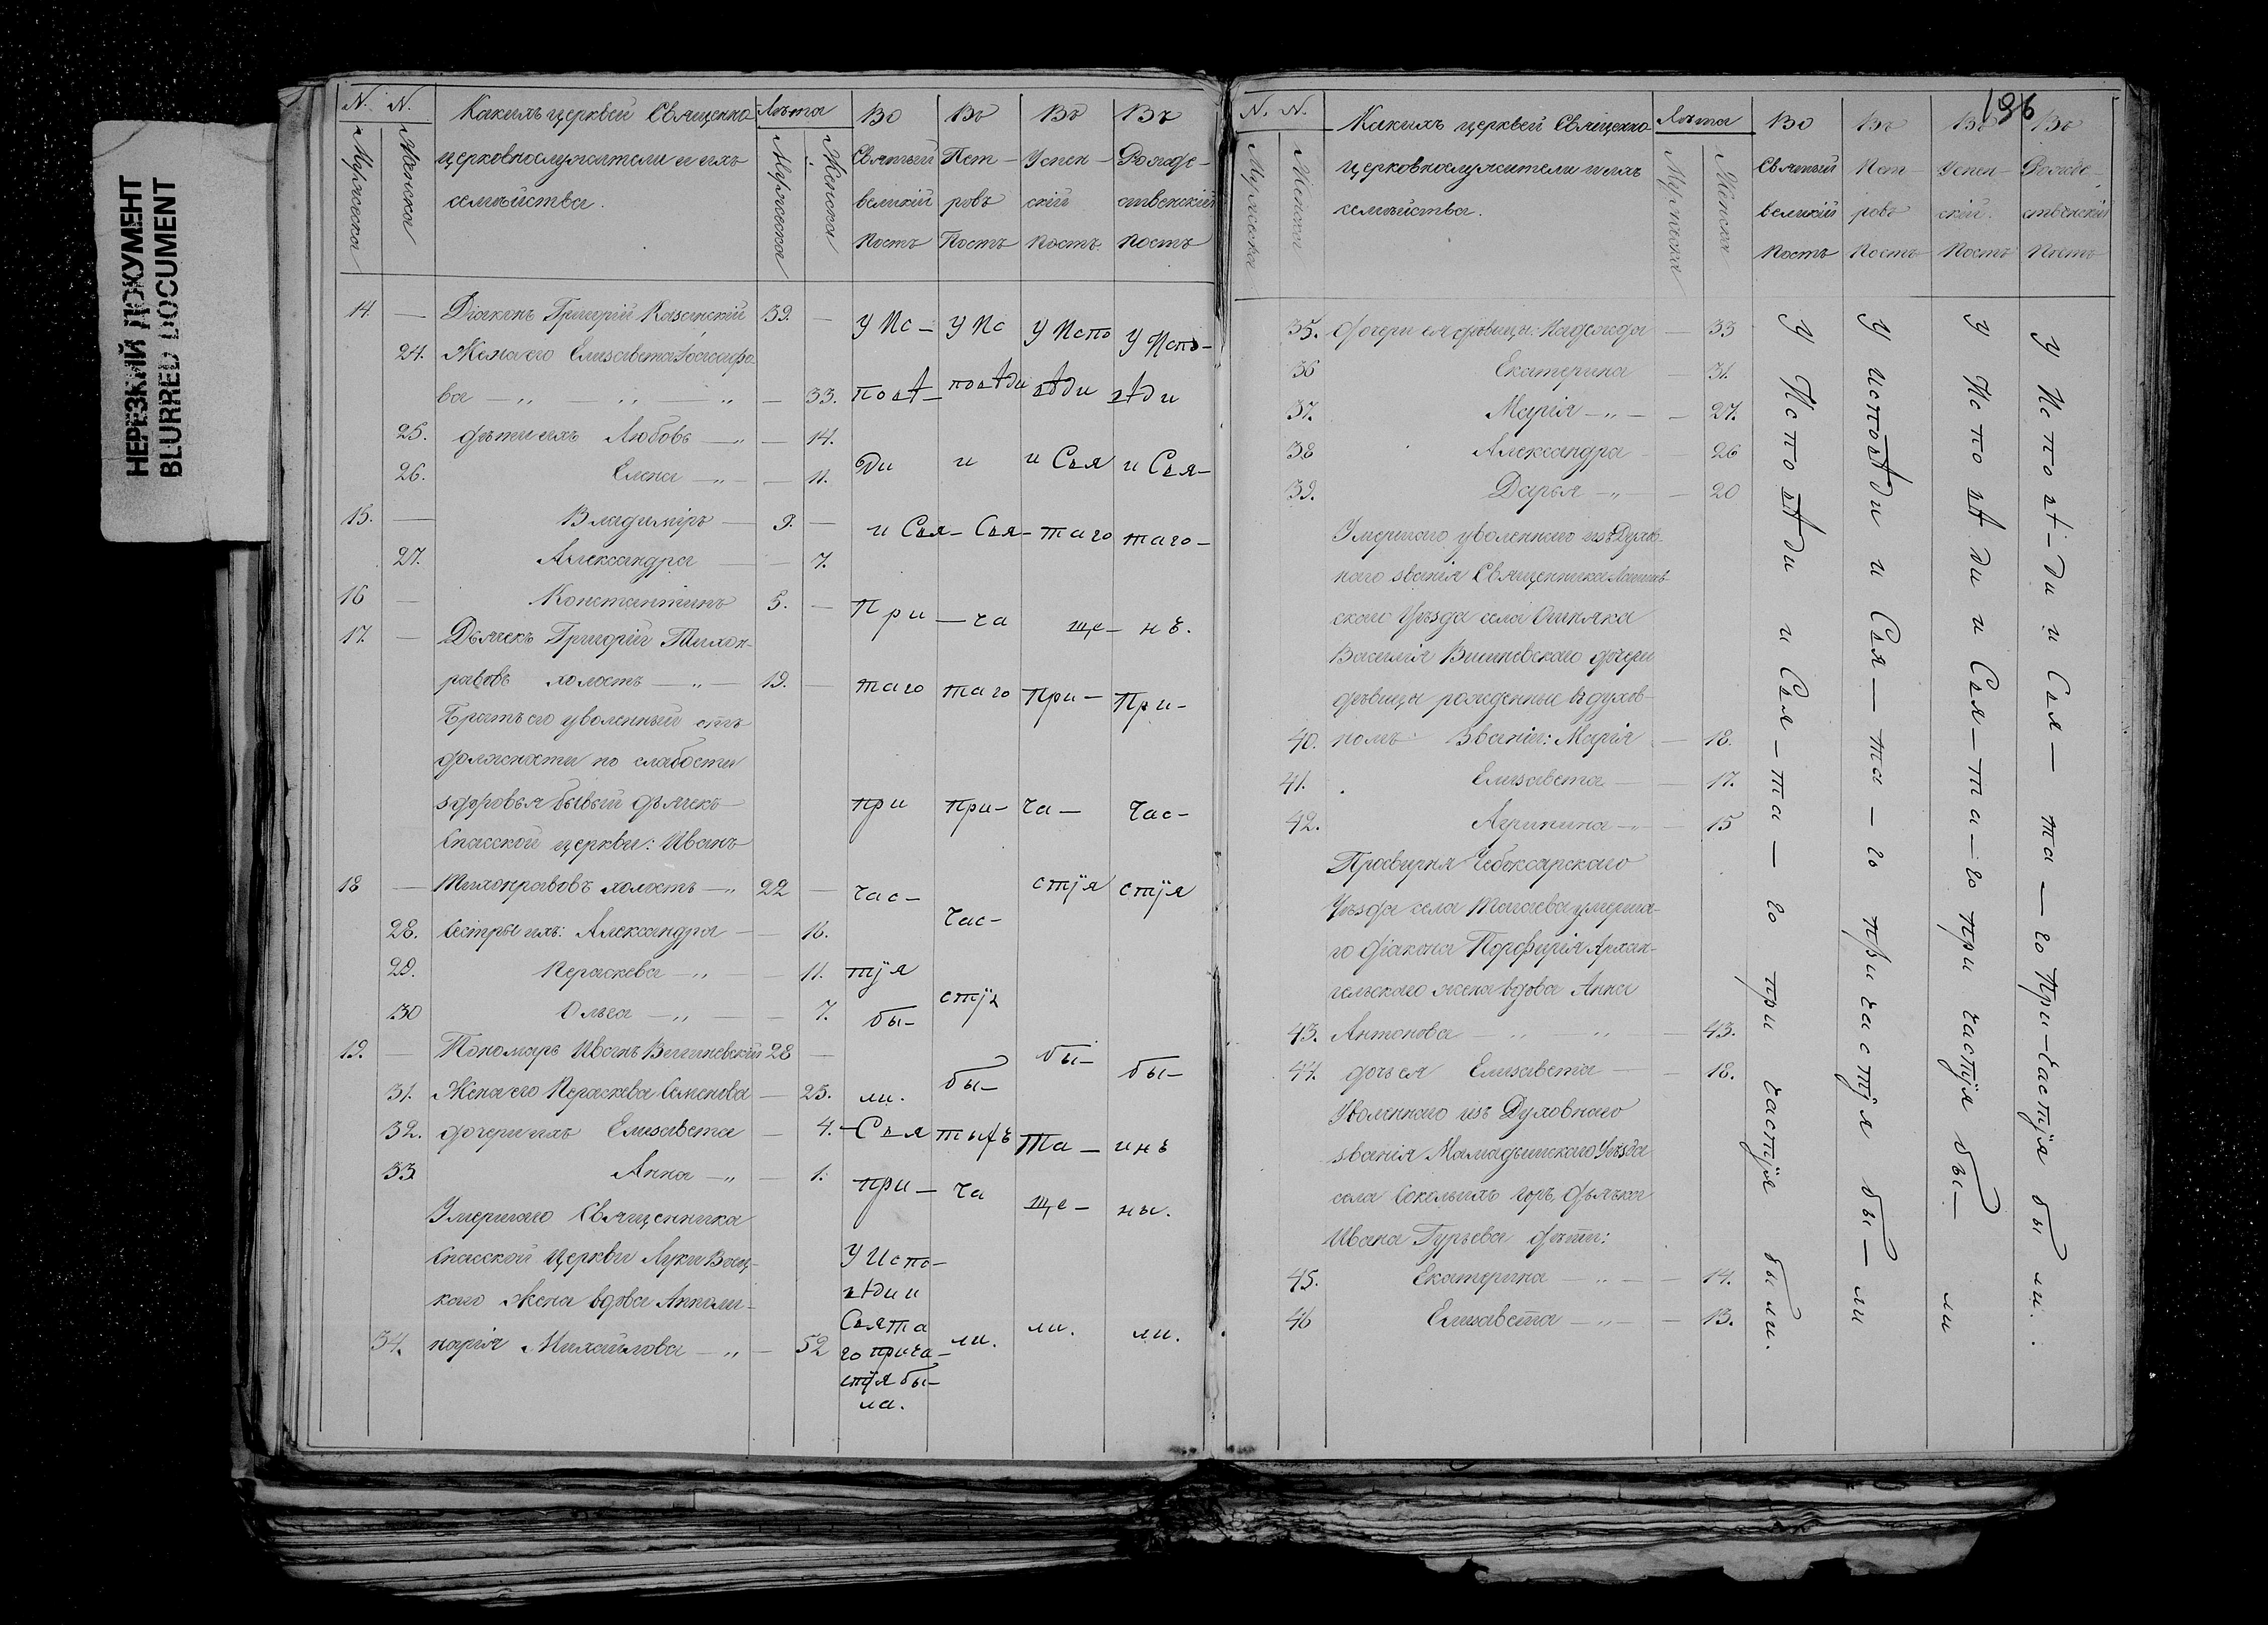 НЕРЕЗКИЙ ДОКУМЕНТ
BLURRED DOCUMENT
N. N. Какихъ церквей Священно- Лѣта Во Въ Въ Въ
Мужеска Женска церковнослужители и ихъ Мужеска Женска Святый Пет- Успен- Рожде-
семѣйства. великій ровъ скій ственскій
Постъ Постъ Постъ Постъ
14. — Діаконъ Григорій Казанскій 39. — У Ис- У Ис У Испо У Испо-
24. Жена его Елисавета
ва — „ „ — „ — 33. повѣ- повѣди вѣди вѣди
25. дѣти ихъ Любовь — „ — 14.
26. Елена — „ — 11. ди и и Свя и Свя-
15. — Владиміръ — 9. — и Свя- Свя- таго таго-
27. Александра — 7.
16 — Константинъ 5. — При — ча ще — нъ.
17. — Дьячекъ Григорій Тихон-
равовъ холостъ — „ — 19. — таго таго При- При-
Братъ его уволенный отъ
должности по слабости
здоровья бывый дьячекъ при при- ча- час-
Спасской церкви: Иванъ
18 — Тихонравовъ холостъ — „ 22 — час- стія стія
28. Сестры ихъ: Александра — 16. час-
29. Параскева — „ — 11. тія
30 Ольга — „ — 7. бы- стія
19. — Пономарь Иванъ Вишневскій 28 — бы- бы-
31. Жена его Параскева Семенова — 25. ли. бы-
32. дочери ихъ Елисавета — 4. Свя тыхъ Та — инъ
33 Анна — „ — 1. при — ча ще — ны.
Умершаго Священника
Спасской церкви Луки У Испо-
каго жена вдова Аполли- вѣди и
34. нарія Михайлова — „ — 52 Свята
го прича- ли. ли. ли.
стія бы-
ла.
196
N. N. Какихъ церквей Священно Лѣта Во Въ Въ Въ
Мужеска Женска церковнослужители и ихъ Мужеска Женска Святый Пет- Успен- Рожде-
семѣйства. великій ровъ скій. ственскій
Постъ Постъ Постъ Постъ
35. дочери ея дѣвицы: Надежда — 33
36 Екатерина — 31.
37. Марія — „ — 27.
38 Александра — 26
39. Дарья — „ — 20
Умершаго уволеннаго изъ Духов-
наго званія Священника Лаишев-
скаго Уѣзда села
Василія Вишневскаго дочери
дѣвицы рожденные въ духов-
40. номъ Званіи: Марія — 18.
41. Елисавета — 17.
42. Агрипина — „ — 15
Просвирня Чебоксарскаго
Уѣзда села умерша-
го діакона Порфирія Архан-
гельскаго жена вдова Анна
43. Антонова — „ „ — 43.
44. дочь ея Елисавета — 18.
Уволеннаго изъ Духовнаго
званія Мамадышскаго Уѣзда
села Сокольихъ горъ, дьячка
Ивана Гурьева дѣти:
45. Екатерина — „ — 14.
46 Елисавета — „ — 13.
У Исповѣди и Свя-та-го причастія были.
У исповѣди и Свя-та-го причастія бы-ли
У Исповѣди и Свя-та-го причастія бы-ли
У Исповѣ-ди и Свя-та-го при-частія бы ли.